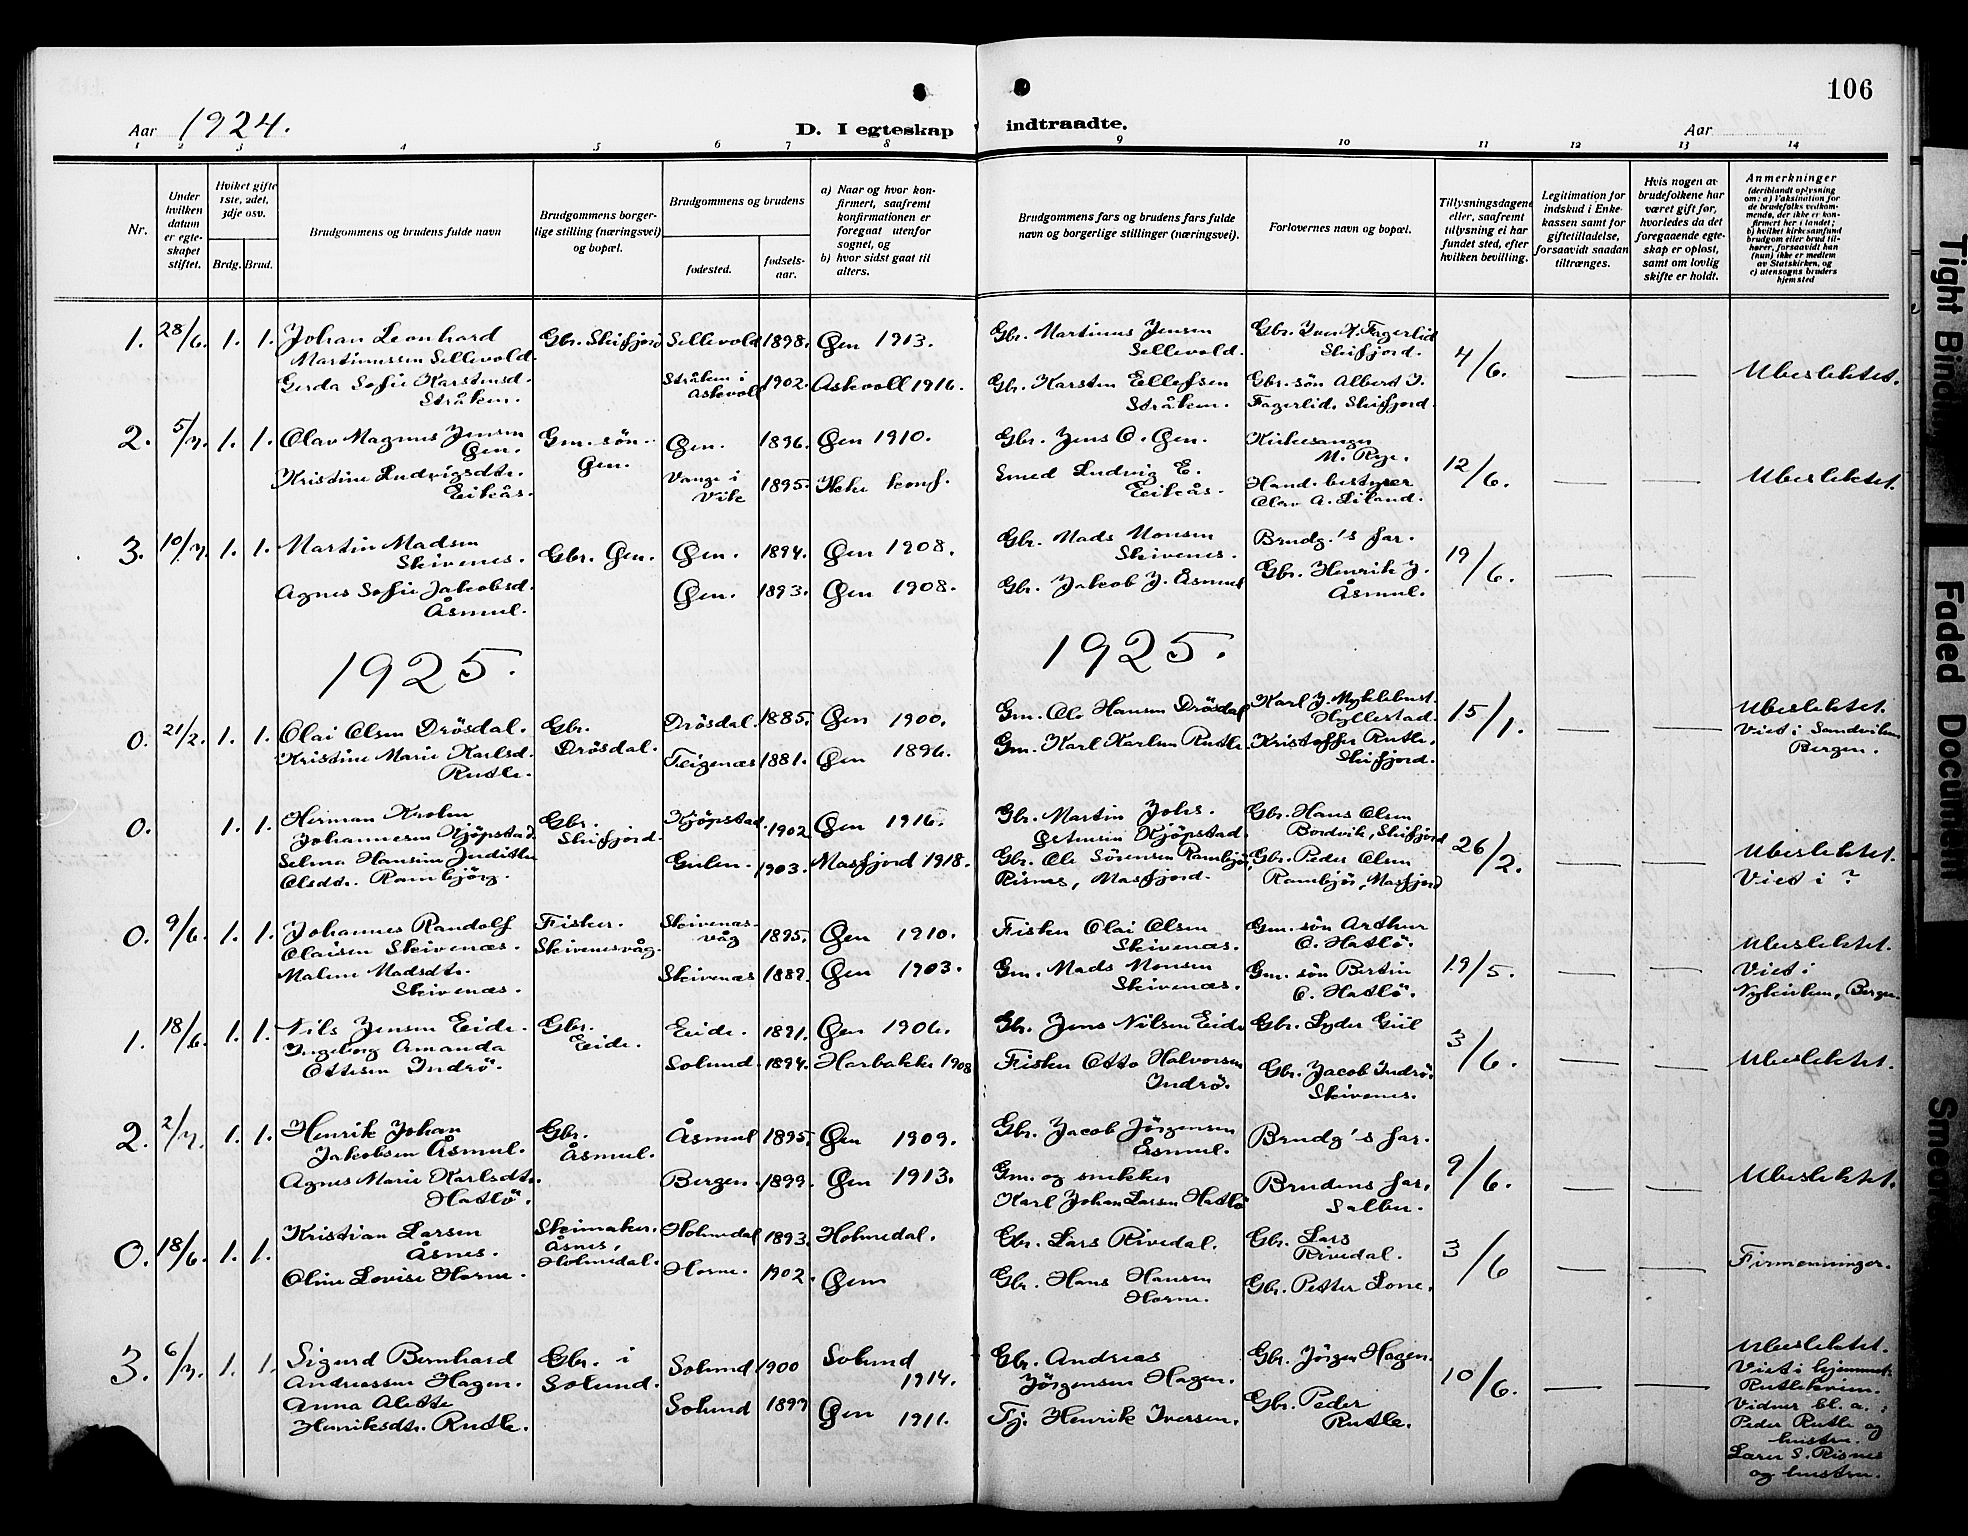 106
Aar 1924.
D. I egteskap indtraadte.
Aar
1 2 3 4 5 6 7 8 9 10 11 12 13 14
Nr.
Under hvilken datum er egteskapet stiftet.
Hvilket gifte 1ste, 2det, 3dje osv.
Brdg. Brud.
Brudgommens og brudens fulde navn
Brudgommens borgerlige stilling (næringsvei) og bopæl.
Brudgommens og brudens
fødested.
fødselsaar.
a) Naar og hvor konfirmert, saafremt konfirmationen er foregaat utenfor sognet, og
b) hvor sidst gaat til alters.
Brudgommens fars og brudens fars fulde navn og borgerlige stillinger (næringsvei).
Forlovernes navn og bopæl.
Tillysningsdagene eller, saafremt tillysning ei har fundet sted, efter hvilken bevilling.
Legitimation for indskud i Enkekassen samt for giftetilladelse, forsaavidt saadan tiltrænges.
Hvis nogen av brudefolkene har været gift før, hvorledes da det foregaaende egteskap er opløst, samt om lovlig skifte er holdt.
Anmerkninger
(deriblandt oplysning om: a) Vaksination for de brudefolks vedkommende, der ikke er konfirmert her i landet; b) hvilket kirkesamfund brudgom eller brud tilhører, forsaavidt han (hun) ikke er medlem av Statskirken, og c) utensogns bruders hjemsted
1. 28/6. 1. 1. Johan Leonhard Gbr. Skifjord Sellevold 1898. Gen 1913. Gbr. Martinus Jensen Gbr. Iver N. Fagerlid 4/6. — —
Martinussen Sellevold. Sellevold. Skifjord.
Gerda Sofie Karstensd. Stråken i 1902. Askvoll 1916. Gbr. Karsten Ellefsen Gbr. søn Albert I. Ubeslektet.
Stråken. Askvoll Stråken. Fagerlid, Skifjord.
2. 5/7. 1. 1. Olav Magnus Jensen Gm. søn. Gen. 1896. Gen 1910. Gbr. Jens O. Gen. Kirkesanger 12/6. — —
Gen. Gen. M. Rye.
Kristine Ludvigsdtr. Vange i 1895. Ikke konf. Smed Ludvig E. Hand. bestyrer Ubeslektet.
Eikås. Vike Eikås. Olav A. Liland.
3. 10/7. 1. 1. Martin Madsen Gbr. Gen. Gen. 1894. Gen 1908. Gbr. Mads Monsen Brudg.'s far. 19/6. — —
Skivenes. Skivenes.
Agnes Sofie Jakobsd. Gen. 1893. Gen 1908. Gbr. Jakob J. Åsmul Gbr. Henrik J.
Åsmul. Åsmul.
1925. 1925.
0. 21/2. 1. 1. Olai Olsen Drösdal. Gbr. Drösdal. 1885. Gen 1900. Gm. Ole Hansen Drösdal Karl J. Myklebust. 15/1. — — Ubeslektet.
Drösdal. Hyllestad. Viet i Sandviken
Kristine Marie Karlsd. Teigenæs 1881. Gen 1896. Gm. Karl Karlsen Rutle. Kristoffer Rutle. Bergen.
Rutle. Skifjord.
0. 1. 1. Herman Krohn Gbr. Kjöpstad. 1902 Gen 1916. Gbr. Martin Johs. Gbr. Hans Olsen 26/2. — —
Johannesen Kjöpstad. Skifjord. Kjöpstad. Bordvik, Skifjord
Selma Hansine Judithe Gulen. 1903. Masfjord 1918. Gbr. Ole Sörensen Rambjör, Gbr. Peder Olsen Ubeslektet.
Olsdtr. Rambjörg. Risnes, Masfjord. Rambjör, Masfjord Viet i ?
0. 9/6. 1. 1. Johannes Randolf Fisker. Skivenæs- 1895. Gen 1910. Fisker Olai Olsen Gm. søn Arthur 19/5. — — Ubeslektet.
Olaisen Skivenæs. Skivenesvåg. våg Skivenæs. O. Hatlö.
Malene Madsdtr. Skivenæs 1889. Gen 1903. Gm. Mads Monsen Gm. søn Bertin Viet i
Skivenæs. Skivenæs. O. Hatlö. Nykirken, Bergen.
1. 18/6. 1. 1. Nils Jensen Eide. Gbr. Eide. 1891. Gen 1906. Gbr. Jens Nilsen Eide Gbr. Lyder Gül 3/6. — —
Ingeborg Amanda Eide. Solund. 1894. Harbakke 1908 Fisker Otto Halvorsen Gbr. Jacob Indrö. Ubeslektet.
Ottesen Indrö. Indrö. Skivenes.
2. 2/7. 1. 1. Henrik Johan Gbr. Åsmul 1895. Gen 1909. Gbr. Jacob Jörgensen Brudg's far. 9/6. — —
Jakobsen Åsmul. Åsmul. Åsmul.
Agnes Marie Karlsdtr. Bergen. 1899. Gen 1913. Gm. og snekker Brudens far, Ubeslektet.
Hatlö. Karl Johan Larsen Hatlö Salbu.
0. 18/6. 1. 1. Kristian Larsen Skomaker. Holmedal 1893. Holmedal. Gbr. Lars Rivedal. Gbr. Lars 3/6 — —
Åsnes. Åsnes, Rivedal. Firmenninger.
Oline Lovise Horne. Holmedal. Horne. 1902. Gen Gbr. Hans Hansen Gbr. Petter Lone.
Horne.
3. 6/7. 1. 1. Sigurd Bernhard Gbr. i Solund 1900 Solund Gbr. Andreas Gbr. Jörgen Hagen. 10/6. — — Ubeslektet.
Andreassen Hagen. Solund. 1914. Jörgensen Hagen. Viet i hjemmet
Anna Alette Solund 1899 Gen 1911. Tj. Henrik Iversen. Gbr. Peder Rutleheim.
Henriksdtr. Rutle. Rutle. Vidner bl. a.:
Peder Rutle og
hustru.
Lærer S. Risnes
og hustru.
Tight Binding
Faded Document